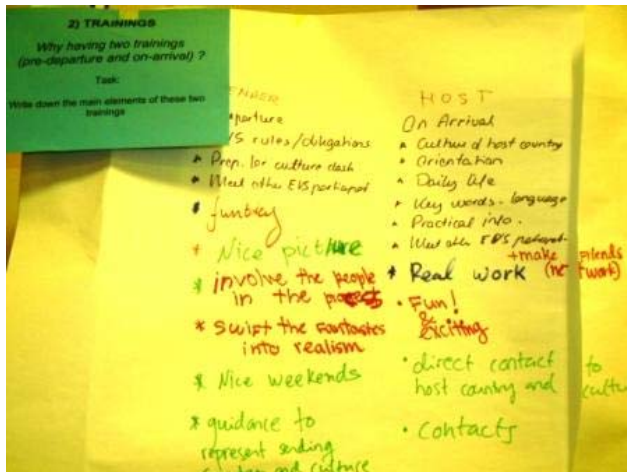 2) TRAININGS
Why having two trainings
(pre-departure and on-arrival) ?
Task:
Write down the main elements of these two
trainings
rules/obligations
* Prep. for culture clash
* Meet other EVS
*
* Nice picture
* involve the people
in the
* SWIFT the FANTASIES
into realism
* Nice weekends
* guidance to
represent sending
and culture
HOST
On Arrival
* Culture of host country
* Orientation
* Daily life
* Key words - language
* Practical info.
* Meet other EVS
+make friends
* Real work (network)
• Fun!
&
exciting
• direct contact to
host country and
• contacts